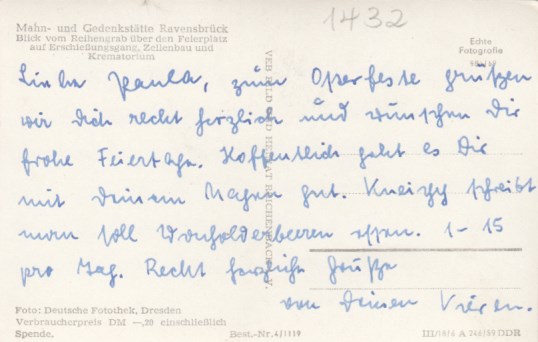 1432
Mahn- und Gedenkstätte Ravensbrück
Blick vom Reihengrab über den Feierplatz
auf Erschießungsgang, Zellenbau und
Krematorium
Echte
Fotografie
Liebe Paula, zum Osterfeste grüßen
wir Dich recht herzlich und wünschen Dir
frohe Feiertage. Hoffentlich geht es Dir
mit deinem Magen gut. Kneipp schreibt
man soll Wacholderbeeren essen. 1-15
pro Tag. Recht herzliche Grüße
von Deinen Vieren.
VEB BILD UND HEIMAT REICHENBACH i. V.
Foto: Deutsche Fotothek, Dresden
Verbraucherpreis DM —,20 einschließlich
Spende.
Best.-Nr. 4/1119
III/18/6 A DDR